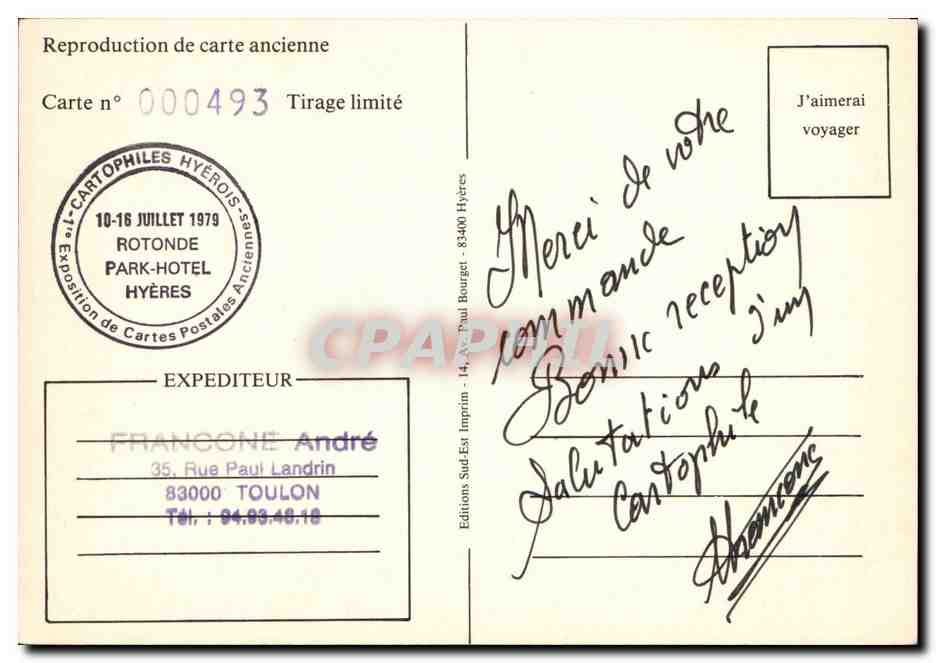 Reproduction de carte ancienne
Carte n° 000493 Tirage limité
1re Exposition de Cartes Postales Anciennes-
-CARTOPHILES HYÉROIS-
10-16 JUILLET 1979
ROTONDE
PARK-HOTEL
HYÈRES
EXPEDITEUR
FRANCONE André
35, Rue Paul Landrin
83000 TOULON
Tél. : 94.93.48.18
Editions Sud-Est Imprim - 14, Av. Paul Bourget - 83400 Hyères
J'aimerai
voyager
Merci de votre
commande
Bonne reception
Salutations d'un
Cartophile
AFrancone
CPAPHIL